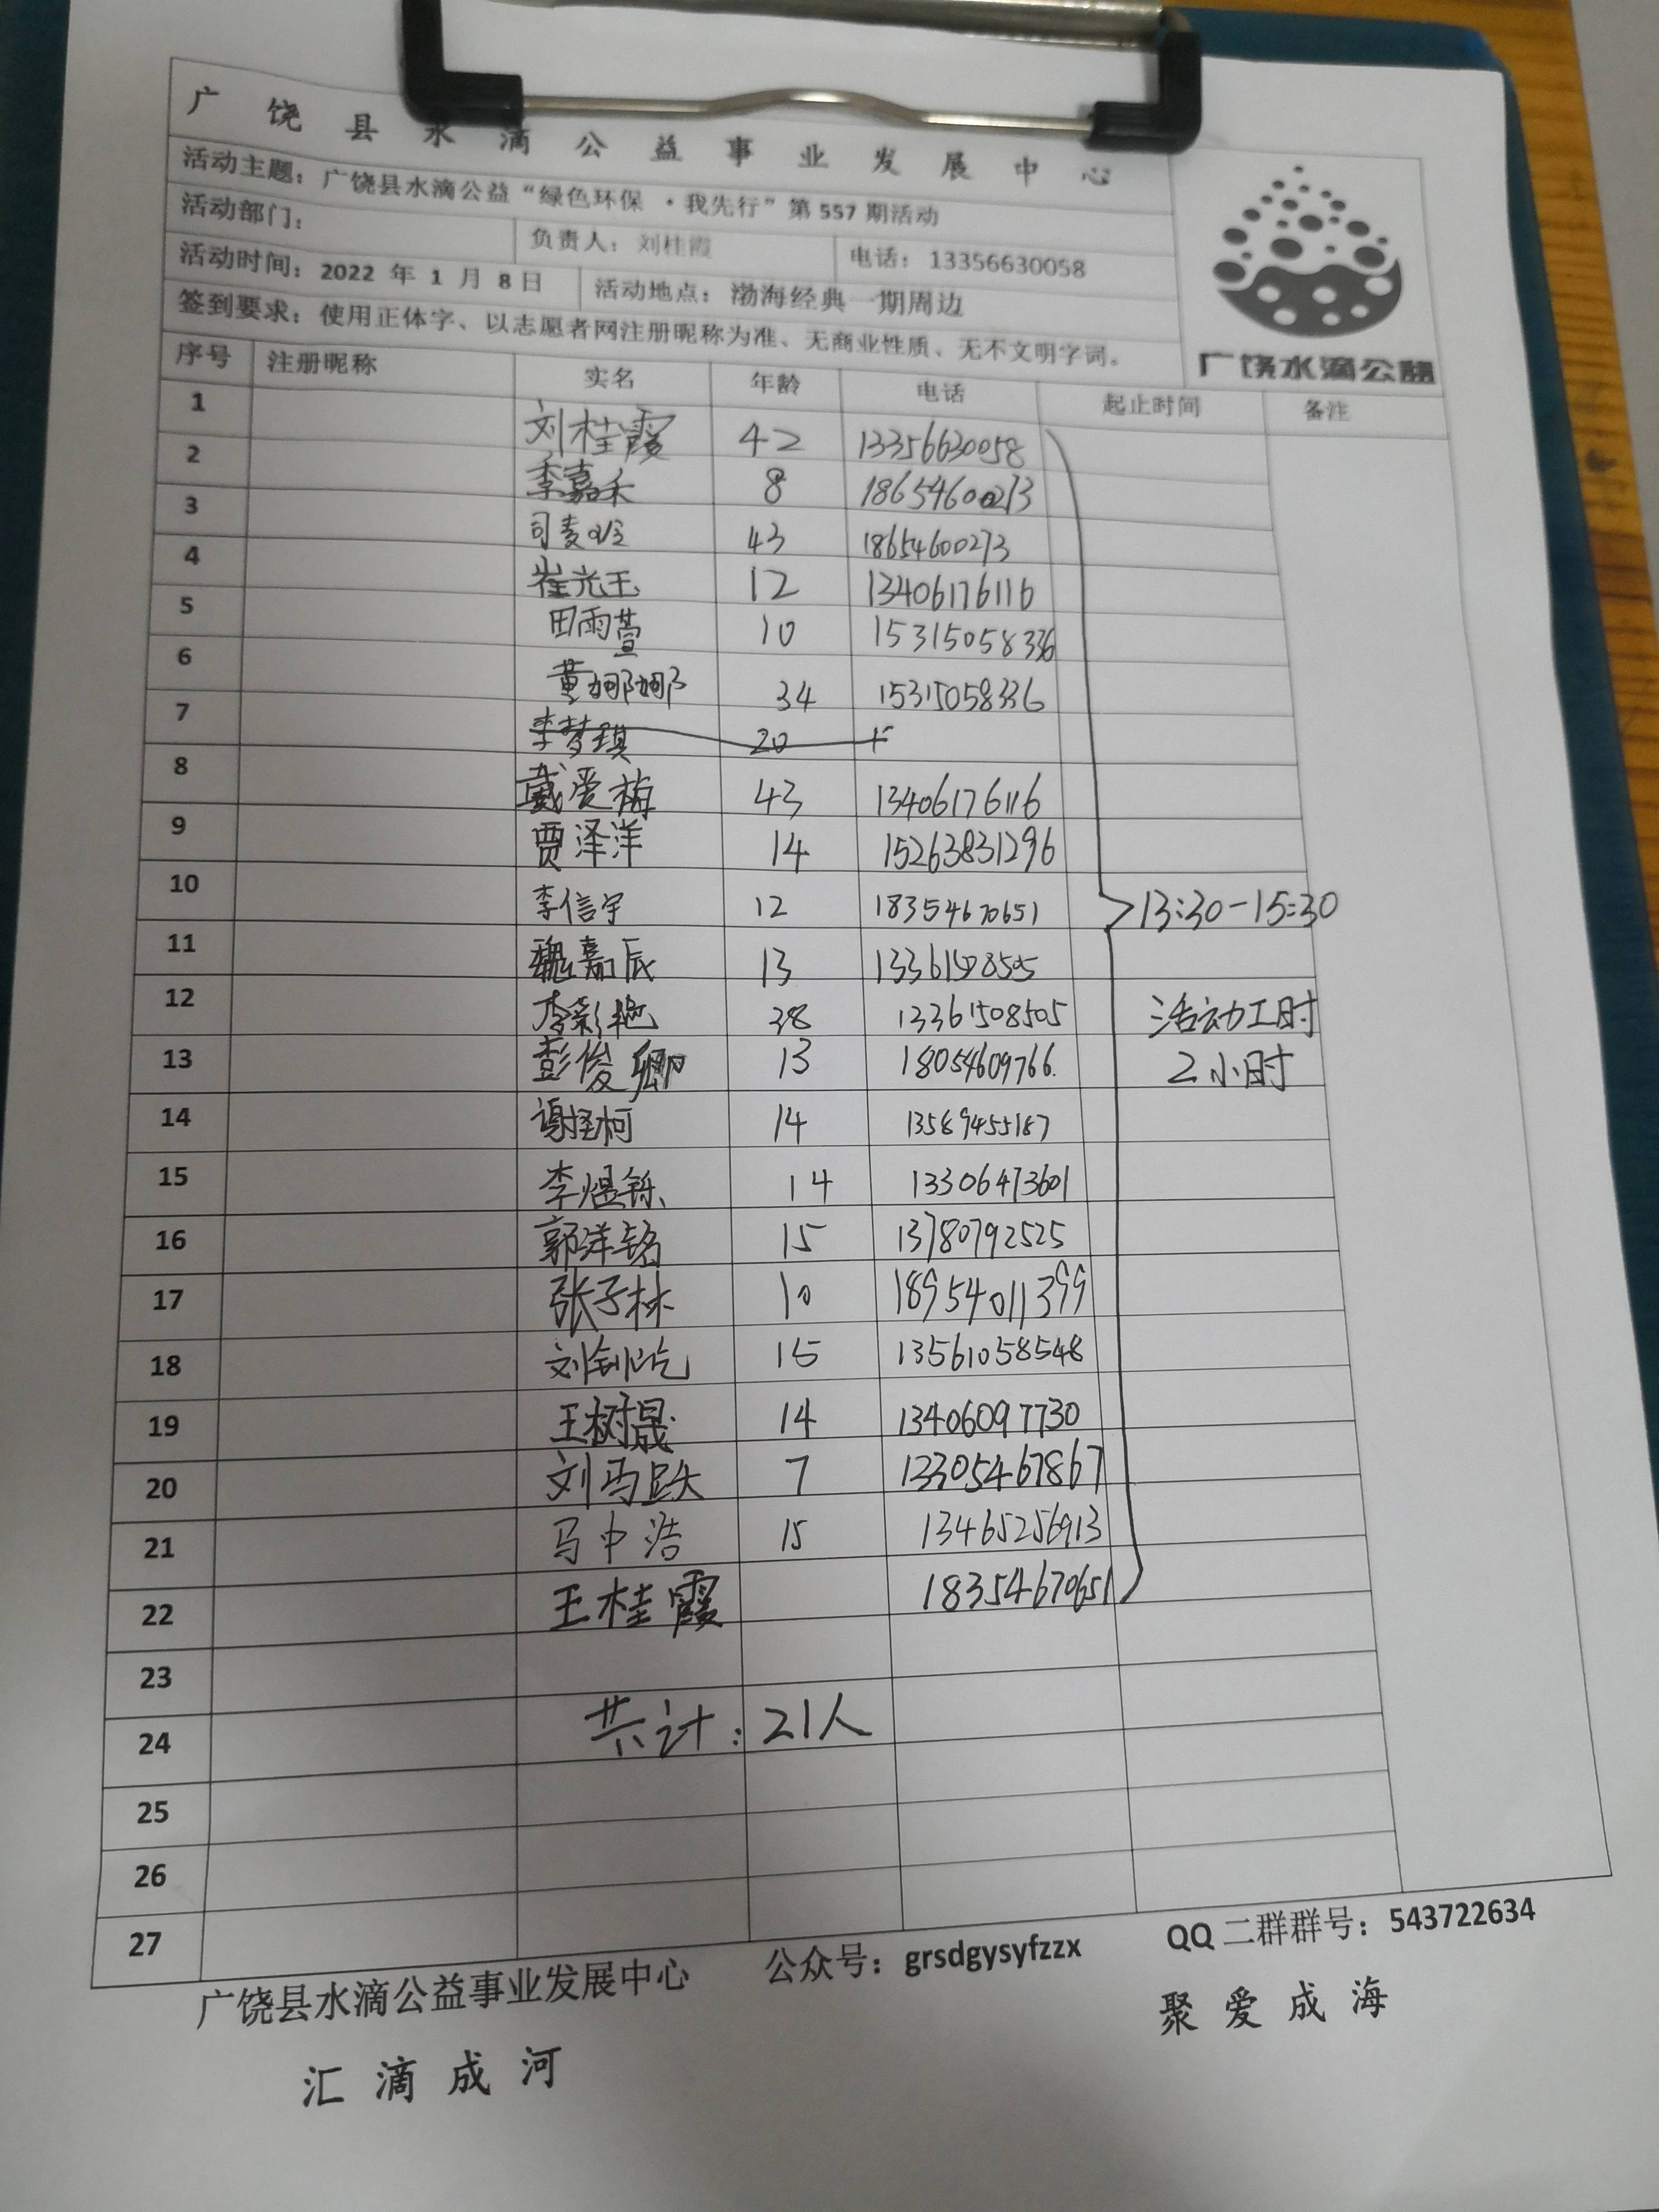 广饶县水滴公益事业发展中心
活动主题：广饶县水滴公益“绿色环保 ·我先行”第 557 期活动
活动部门：
负责人：刘桂霞 电话：13356630058
活动时间：2022 年 1 月 8 日 活动地点：渤海经典一期周边
签到要求：使用正体字、以志愿者网注册昵称为准、无商业性质、无不文明字词。
广饶水滴公益
序号 注册昵称 实名 年龄 电话 起止时间 备注
1 刘桂霞 42 13356630058
2 季嘉禾 8 18654600273
3 司麦 43 18654600273
4 崔光玉 12 13406176116
5 田雨萱 10 15315058336
6 黄娜娜 34 15315058336
7 李梦琪 20
8 戴爱梅 43 13406176116
9 贾泽洋 14 15263831296
10 李信宇 12 18354670651 13:30-15:30
11 魏嘉辰 13 13361508505
12 李彩艳 38 13361508505 活动工时
13 彭俊卿 13 18054609766. 2小时
14 谢 柯 14 13589455187
15 李煜铄 14 13306473601
16 郭洋铭 15 13780792525
17 张子林 10 18954011399
18 刘钊 15 13561058548
19 王树晟 14 13406097730
20 刘马跃 7 13305467867
21 马中浩 15 13465256913
22 王桂霞 18354670651
23
24 共计：21人
25
26
27
广饶县水滴公益事业发展中心 公众号：grsdgysyfzzx QQ 二群群号：543722634
汇滴成河 聚爱成海